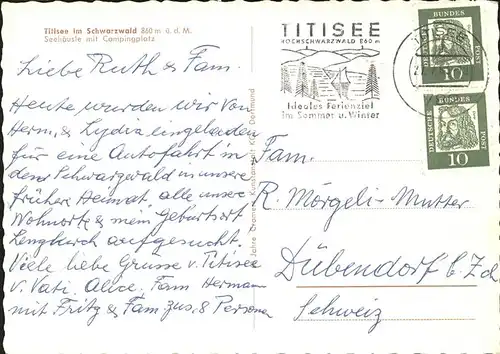 Titisee im Schwarzwald 860 m ü. d. M.
Seeläufe mit Campingplatz
Liebe Ruth & Fam.
Heute wurden wir von
Herm. & Lydia eingeladen
für eine Autofahrt in
den Schwarzwald in unsere
frühere Heimat, alle unsere
Wohnorte & mein Geburtsort
Lengkirch aufgesucht.
Viele liebe Grüsse v. Titisee
v. Vati. Alice. Fam Hermann
mit Fritz & Fam zus. 8 Personen
TITISEE
HOCHSCHWARZWALD 860 m
Ideales Ferienziel
im Sommer u. Winter
TITISEE
DEUTSCHE BUNDES POST
10
DEUTSCHE BUNDES POST
10
Fam.
R. Mörgeli-Mutter
Dübendorf b. Zch
Schweiz